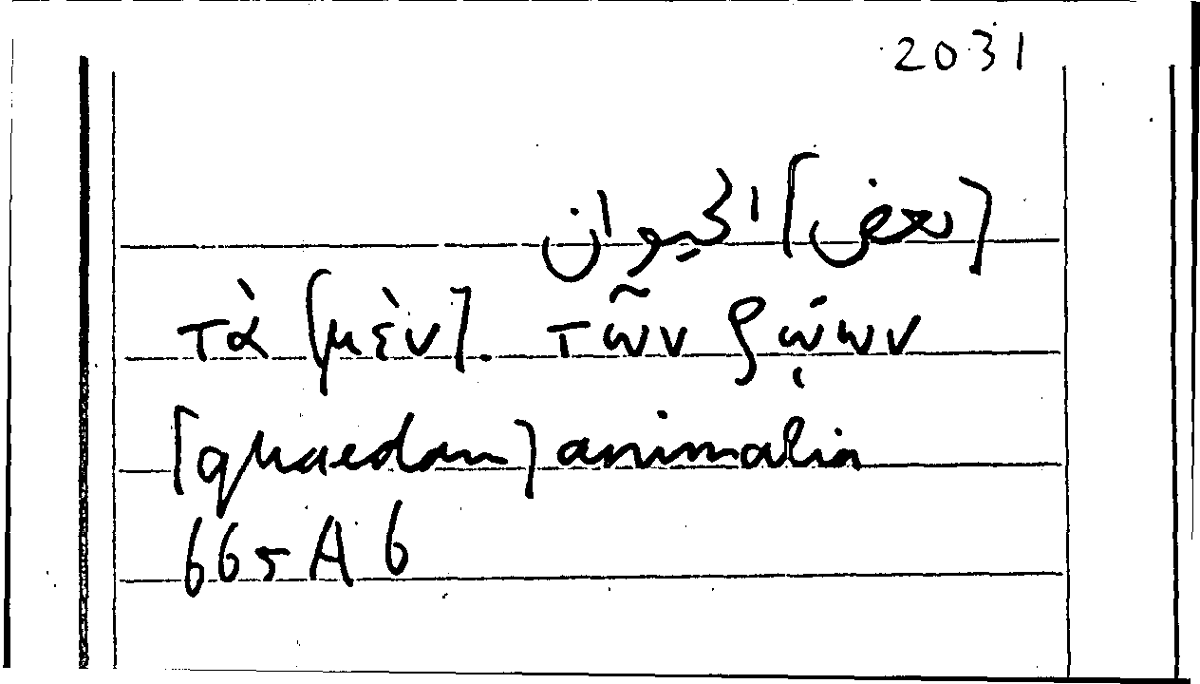 2031
[بعض] الحيوان
τὰ [μὲν]. τῶν ζῴων
[quaedam] animalia
665 A 6